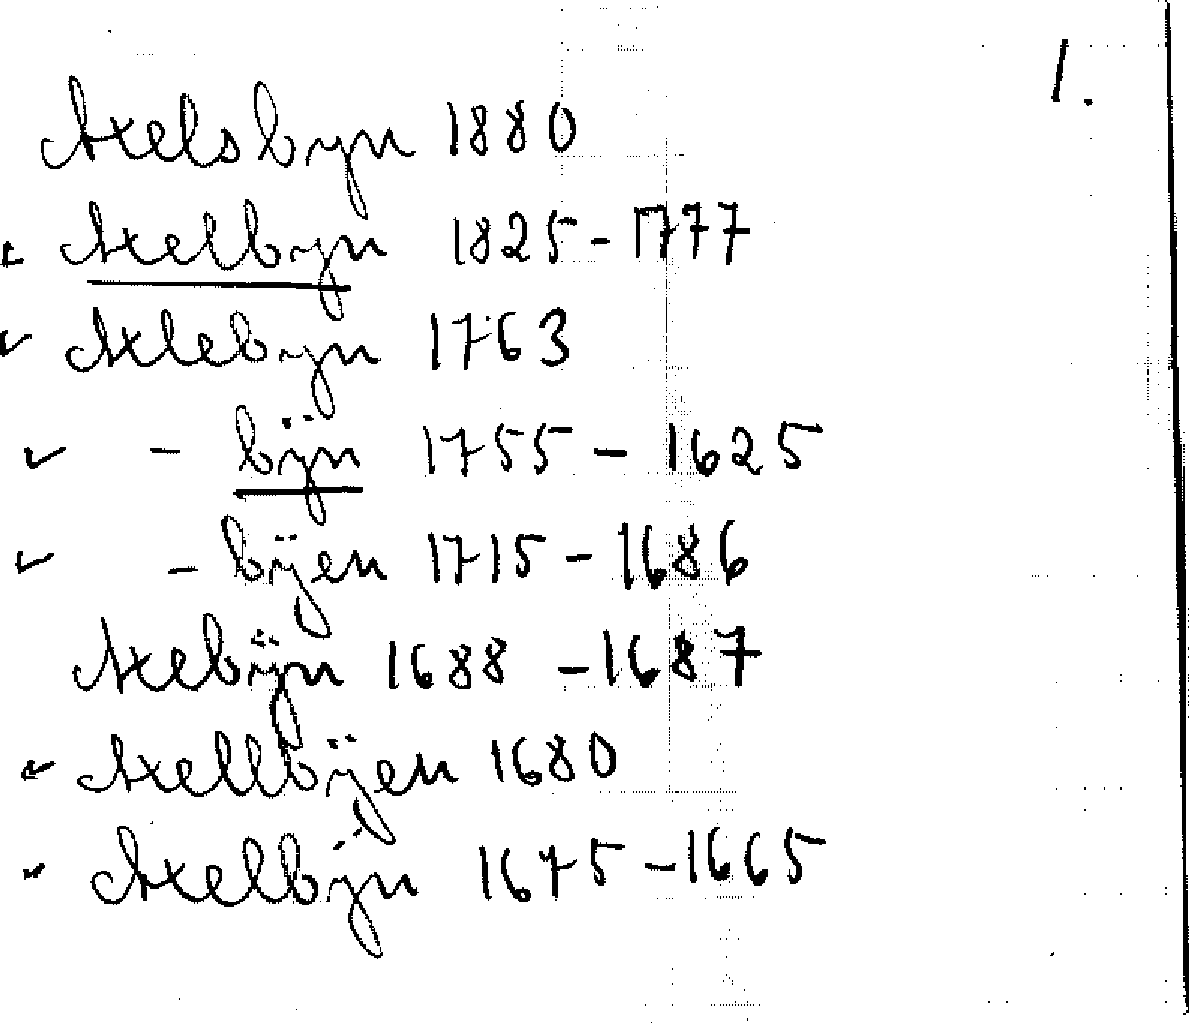 1.
Axelsbyn 1880
✓ Axelbyn 1825-1777
✓ Axlebyn 1763
✓ - bÿn 1755 - 1625
✓ - bÿen 1715 - 1686
Axebÿn 1688 - 1687
✓ Axellbÿen 1680
✓ Axelbÿn 1675 - 1665